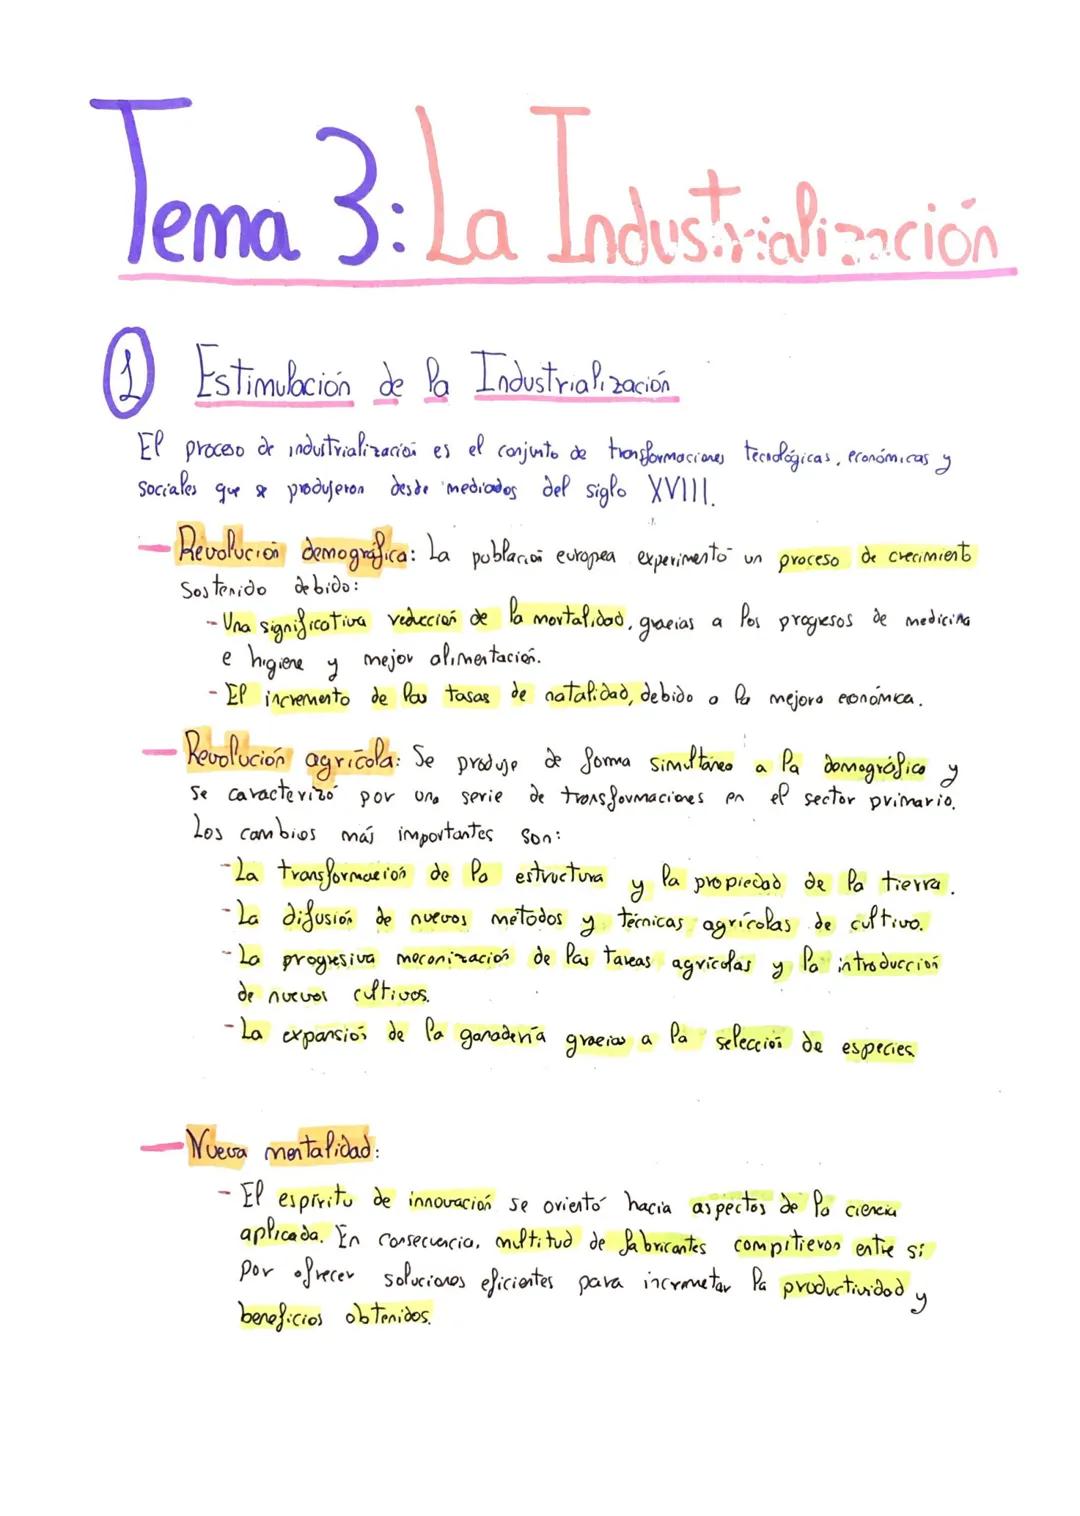 Tema 3: La Industrialización
1 Estimulación de la Industrialización
El proceso de industrialización es el conjunto de transformaciones tecnológicas, económicas y
sociales que se produjeron desde mediados del siglo XVIII.
— Revolución demográfica: La población europea experimentó un proceso de crecimiento
sostenido debido:
- Una significativa reducción de la mortalidad, gracias a los progresos de medicina
e higiene y mejor alimentación.
- El incremento de las tasas de natalidad, debido a la mejora económica.
— Revolución agrícola: Se produje de forma simultánea a la demográfica y
se caracterizó por una serie de transformaciones en el sector primario.
Los cambios más importantes son:
- La transformación de la estructura y la propiedad de la tierra.
- La difusión de nuevos métodos y técnicas agrícolas de cultivo.
- La progresiva mecanización de las tareas agrícolas y la introducción
de nuevos cultivos.
- La expansión de la ganadería gracias a la selección de especies
— Nueva mentalidad:
- El espíritu de innovación se orientó hacia aspectos de la ciencia
aplicada. En consecuencia, multitud de fabricantes compitieron entre sí
por ofrecer soluciones eficientes para incrementar la productividad y
beneficios obtenidos.